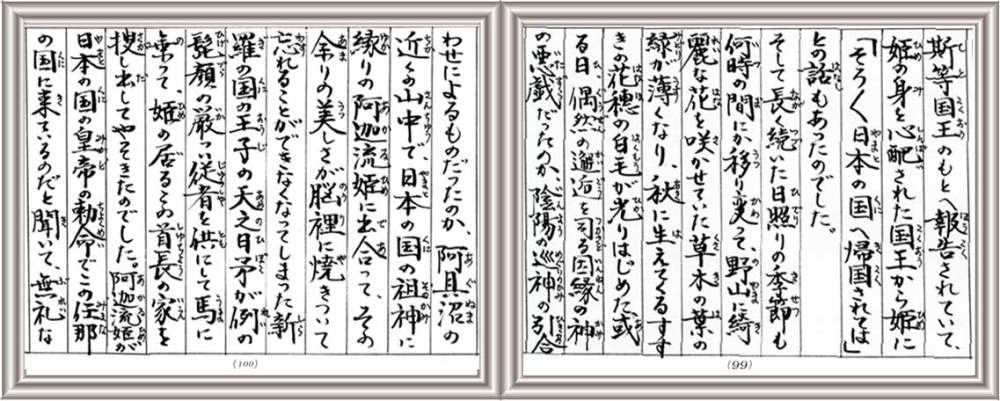 斯等国王のもとへ報告されていて、
姫の身を心配された国王から姫に
「そろ〱日本の国へ帰国されては」
との話もあったのでした。
そして長く続いた日照りの季節も
何時の間にか移り変って、野山に綺
麗な花を咲かせていた草木の葉の
緑が薄くなり、秋に生えてくるすす
きの花穂の白毛が光りはじめた或
る日、偶然の邂逅を司る因縁の神
の悪戯だったのか、陰陽の巡神の引合
(99)
わせによるものだったのか、阿具沼の
近くの山中で、日本の国の祖神に
縁りの阿迦流姫に出合って、その
余りの美しさが脳裡に焼きついて
忘れることができなくなってしまった新
羅の国の王子の天之日矛が例の
髭顔の厳つい従者を供にして馬に
乗って、姫の居るこの首長の家を
捜し出してやってきたのでした。阿迦流姫が
日本の国の皇帝の勅命でこの任那
の国に来ているのだと聞いて、無礼な
(100)